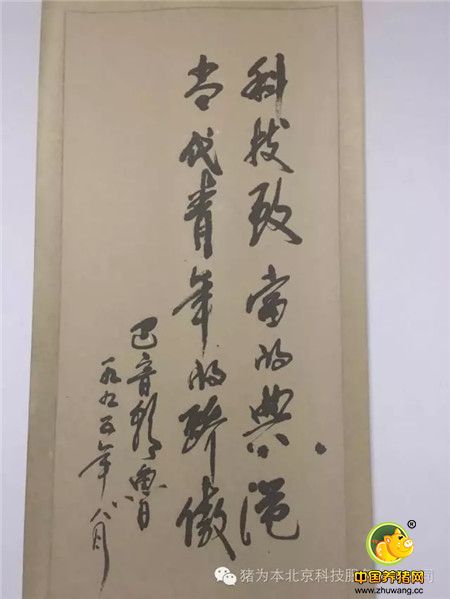 科技致富的典范
当代青年的骄傲
巴音朝鲁
一九九五年八月
猪为本北京科技服
®
中国养猪网
www.zhuwang.cc